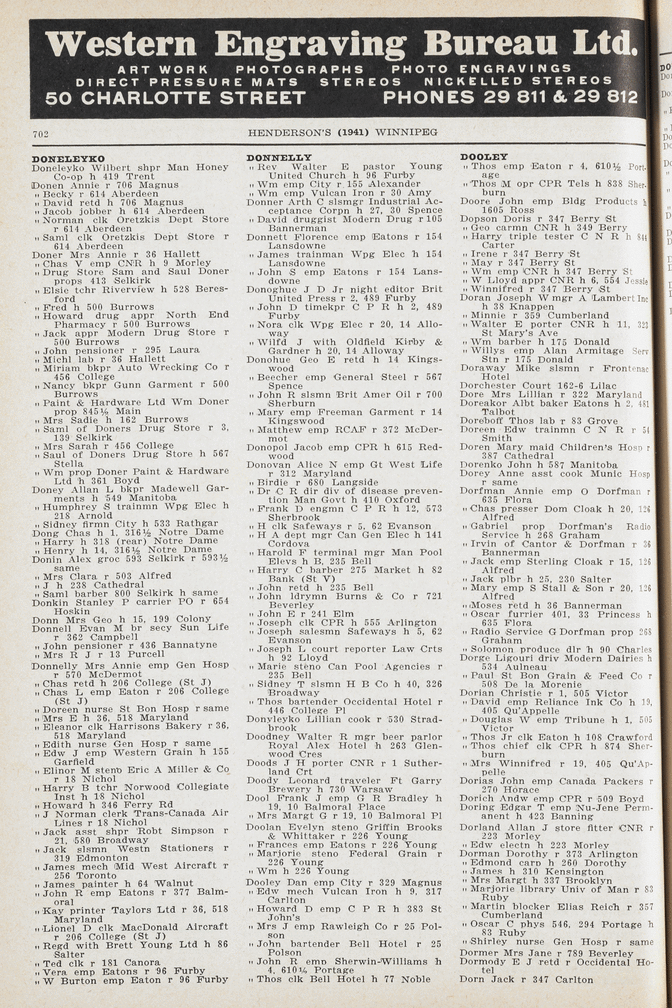 Western Engraving Bureau Ltd.
ART WORK PHOTOGRAPHS PHOTO ENGRAVINGS
DIRECT PRESSURE MATS STEREOS NICKELLED STEREOS
50 CHARLOTTE STREET PHONES 29 811 & 29 812
702 HENDERSON'S (1941) WINNIPEG
DONELEYKO
Doneleyko Wilbert shpr Man Honey
Co-op h 419 Trent
Donen Annie r 706 Magnus
„ Becky r 614 Aberdeen
„ David retd h 706 Magnus
„ Jacob jobber h 614 Aberdeen
„ Norman clk Oretzkis Dept Store
r 614 Aberdeen
„ Saml clk Oretzkis Dept Store r
614 Aberdeen
Doner Mrs Annie r 36 Hallett
„ Chas V emp CNR h 9 Morley
„ Drug Store Sam and Saul Doner
props 413 Selkirk
„ Elsie tchr Riverview h 528 Beres-
ford
„ Fred h 500 Burrows
„ Howard drug appr North End
Pharmacy r 500 Burrows
„ Jack appr Modern Drug Store r
500 Burrows
„ John pensioner r 295 Laura
„ Michl lab r 36 Hallett
„ Miriam bkpr Auto Wrecking Co r
456 College
„ Nancy bkpr Gunn Garment r 500
Burrows
„ Paint & Hardware Ltd Wm Doner
prop 845½ Main
„ Mrs Sadie h 162 Burrows
„ Saml of Doners Drug Store r 3,
139 Selkirk
„ Mrs Sarah r 456 College
„ Saul of Doners Drug Store h 567
Stella
„ Wm prop Doner Paint & Hardware
Ltd h 361 Boyd
Doney Allan L bkpr Madewell Gar-
ments h 549 Manitoba
„ Humphrey S trainmn Wpg Elec h
218 Arnold
„ Sidney firmn City h 533 Rathgar
Dong Chas h 1, 316½ Notre Dame
„ Harry h 318 (rear) Notre Dame
„ Henry h 14, 316½ Notre Dame
Donin Alex groc 593 Selkirk r 593½
same
„ Mrs Clara r 503 Alfred
„ J h 238 Cathedral
„ Saml barber 800 Selkirk h same
Donkin Stanley P carrier PO r 654
Hoskin
Donn Mrs Geo h 15, 199 Colony
Donnell Evan M br secy Sun Life
r 362 Campbell
„ John pensioner r 436 Bannatyne
„ Mrs R J r 13 Purcell
Donnelly Mrs Annie emp Gen Hosp
r 570 McDermot
„ Chas retd h 206 College (St J)
„ Chas L emp Eaton r 206 College
(St J)
„ Doreen nurse St Bon Hosp r same
„ Mrs E h 36, 518 Maryland
„ Eleanor clk Harrisons Bakery r 36,
518 Maryland
„ Edith nurse Gen Hosp r same
„ Edw J emp Western Grain h 155
Garfield
„ Elinor M steno Eric A Miller & Co
r 18 Nichol
„ Harry B tchr Norwood Collegiate
Inst h 18 Nichol
„ Howard h 346 Ferry Rd
„ J Norman clerk Trans-Canada Air
Lines r 18 Nichol
„ Jack asst shpr Robt Simpson r
21, 580 Broadway
„ Jack slsmn Westn Stationers r
319 Edmonton
„ James mech Mid West Aircraft r
256 Toronto
„ James painter h 64 Walnut
„ John R emp Eatons r 377 Balm-
oral
„ Kay printer Taylors Ltd r 36, 518
Maryland
„ Lionel D clk MacDonald Aircraft
r 206 College (St J)
„ Regd with Brett Young Ltd h 86
Salter
„ Ted clk r 181 Canora
„ Vera emp Eatons r 96 Furby
„ W Burton emp Eaton r 96 Furby
DONNELLY
„ Rev Walter E pastor Young
United Church h 96 Furby
„ Wm emp City r 155 Alexander
„ Wm emp Vulcan Iron r 30 Amy
Donner Arth C slsmgr Industrial Ac-
ceptance Corpn h 27, 30 Spence
„ David druggist Modern Drug r 105
Bannerman
Donnett Florence emp Eatons r 154
Lansdowne
„ James trainman Wpg Elec h 154
Lansdowne
„ John S emp Eatons r 154 Lans-
downe
Donoghue J D Jr night editor Brit
United Press r 2, 489 Furby
„ John D timekpr C P R h 2, 489
Furby
„ Nora clk Wpg Elec r 20, 14 Allo-
way
„ Wilfd J with Oldfield Kirby &
Gardner h 20, 14 Alloway
Donohue Geo E retd h 14 Kings-
wood
„ Beecher emp General Steel r 567
Spence
„ John R slsmn Brit Amer Oil r 700
Sherburn
„ Mary emp Freeman Garment r 14
Kingswood
„ Matthew emp RCAF r 372 McDer-
mot
Donopol Jacob emp CPR h 615 Red-
wood
Donovan Alice N emp Gt West Life
r 312 Maryland
„ Birdie r 680 Langside
„ Dr C R dir div of disease preven-
tion Man Govt h 410 Oxford
„ Frank D engmn C P R h 12, 573
Sherbrook
„ H clk Safeways r 5, 62 Evanson
„ H A dept mgr Can Gen Elec h 141
Cordova
„ Harold F terminal mgr Man Pool
Elevs h B, 235 Bell
„ Harry C barber 275 Market h 82
Bank (St V)
„ John retd h 235 Bell
„ John ldrymn Burns & Co r 721
Beverley
„ John E r 241 Elm
„ Joseph clk CPR h 555 Arlington
„ Joseph salesmn Safeways h 5, 62
Evanson
„ Joseph L court reporter Law Crts
h 92 Lloyd
„ Marie steno Can Pool Agencies r
235 Bell
„ Sidney T slsmn H B Co h 40, 326
Broadway
„ Thos bartender Occidental Hotel r
446 College Pl
Donyleyko Lillian cook r 530 Strad-
brook
Doodney Walter R mgr beer parlor
Royal Alex Hotel h 263 Glen-
wood Cres
Doods J H porter CNR r 1 Suther-
land Crt
Doody Leonard traveler Ft Garry
Brewery h 730 Warsaw
Dool Frank J emp G R Bradley h
19, 10 Balmoral Place
„ Mrs Margt G r 19, 10 Balmoral Pl
Doolan Evelyn steno Griffin Brooks
& Whittaker r 226 Young
„ Frances emp Eatons r 226 Young
„ Marjorie steno Federal Grain r
226 Young
„ Wm h 226 Young
Dooley Dan emp City r 329 Magnus
„ Edw mech Vulcan Iron h 9, 317
Carlton
„ Howard D emp C P R h 383 St
John's
„ Mrs J emp Rawleigh Co r 25 Pol-
son
„ John bartender Bell Hotel r 25
Polson
„ John R emp Sherwin-Williams h
4, 610½ Portage
„ Thos clk Bell Hotel h 77 Noble
DOOLEY
„ Thos emp Eaton r 4, 610½ Port-
age
„ Thos M opr CPR Tels h 838 Sher-
burn
Doore John emp Bldg Products h
1605 Ross
Dopson Doris r 347 Berry St
„ Geo carmn CNR h 349 Berry
„ Harry triple tester C N R h
Carter
„ Irene r 347 Berry St
„ May r 347 Berry St
„ Wm emp CNR h 347 Berry St
„ W Lloyd appr CNR h 6, 554 Jessie
„ Winnifred r 347 Berry St
Doran Joseph W mgr A Lambert Inc
h 38 Knappen
„ Minnie r 359 Cumberland
„ Walter E porter CNR h 11, 323
St Mary's Ave
„ Wm barber h 175 Donald
„ Willys emp Alan Armitage Serv
Stn r 175 Donald
Doraway Mike slsmn r Frontenac
Hotel
Dorchester Court 162-6 Lilac
Dore Mrs Lillian r 322 Maryland
Doreakor Albt baker Eatons h 2, 481
Talbot
Doreboff Thos lab r 83 Grove
Doreen Edw trainmn C N R r 54
Smith
Doren Mary maid Children's Hosp r
387 Cathedral
Dorenko John h 587 Manitoba
Dorey Anne asst cook Munic Hosp
r same
Dorfman Annie emp O Dorfman r
635 Flora
„ Chas presser Dom Cloak h 20, 126
Alfred
„ Gabriel prop Dorfman's Radio
Service h 268 Graham
„ Irvin of Cantor & Dorfman r 36
Bannerman
„ Jack emp Sterling Cloak r 15, 126
Alfred
„ Jack plbr h 25, 230 Salter
„ Mary emp S Stall & Son r 20, 126
Alfred
„ Moses retd h 36 Bannerman
„ Oscar furrier 401, 33 Princess h
635 Flora
„ Radio Service G Dorfman prop 268
Graham
„ Solomon produce dlr h 90 Charles
Dorge Ligouri driv Modern Dairies h
534 Aulneau
„ Paul St Bon Grain & Feed Co r
508 De la Morenie
Dorian Christie r 1, 505 Victor
„ David emp Reliance Ink Co h 19,
405 Qu'Appelle
„ Douglas W emp Tribune h 1, 505
Victor
„ Thos Jr clk Eatons h 108 Crawford
„ Thos chief clk CPR h 874 Sher-
burn
„ Mrs Winnifred r 19, 405 Qu'Ap-
pelle
Dorias John emp Canada Packers r
270 Horace
Dorich Andw emp CPR r 509 Boyd
Doring Edgar T emp Nu-Jene Perm-
anent h 423 Banning
Dorland Allan J store fitter CNR r
223 Morley
„ Edw electn h 223 Morley
Dorman Dorothy r 373 Arlington
„ Edmond carp h 260 Dorothy
„ James h 310 Kensington
„ Mrs Margt h 337 Brooklyn
„ Marjorie library Univ of Man r 83
Ruby
„ Martin blocker Elias Reich r 357
Cumberland
„ Oscar C phys 546, 294 Portage h
83 Ruby
„ Shirley nurse Gen Hosp r same
Dormer Mrs Jane r 789 Beverley
Dormody E J retd r Occidental Ho-
tel
Dorn Jack r 347 Carlton